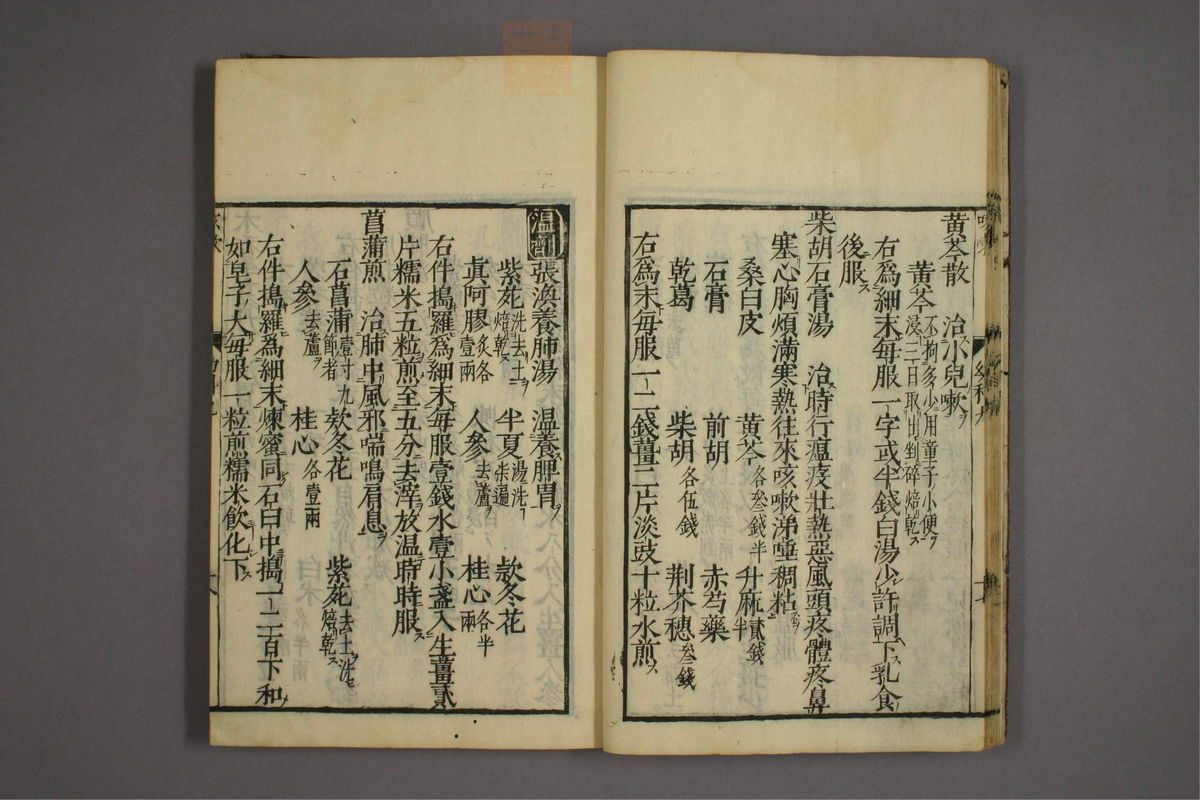 黄芩散　治小兒嗽
黄芩不拘多少用童子小便浸三日取出剉碎焙乾
右為細末每服一字或半錢白湯少許調下乳食
後服
柴胡石膏湯　治時行瘟疫壯熱惡風頭疼體疼鼻
塞心胸煩滿寒熱往來咳嗽涕唾稠粘
桑白皮　黄芩各叁錢半　升麻貳錢半
石膏　前胡　赤芍藥
乾葛　柴胡各伍錢　荆芥穗叁錢
右爲末每服一二錢薑二片淡豉十粒水煎
温劑張渙養肺湯　温養脾胃
紫菀洗去土焙乾　半夏湯洗柒遍　欵冬花
眞阿膠炙各壹兩　人參去蘆　桂心各半兩
右件搗羅爲細末每服壹錢水壹小盞入生薑貳
片糯米五粒煎至五分去滓放温時時服
菖蒲煎　治肺中風邪喘鳴肩息
石菖蒲壹寸九節者　欵冬花　紫菀去土洗焙乾
人參去蘆　桂心各壹兩
右件搗羅爲細末煉蜜同石臼中搗一二百下和
如皂子大每服一粒煎糯米飲化下